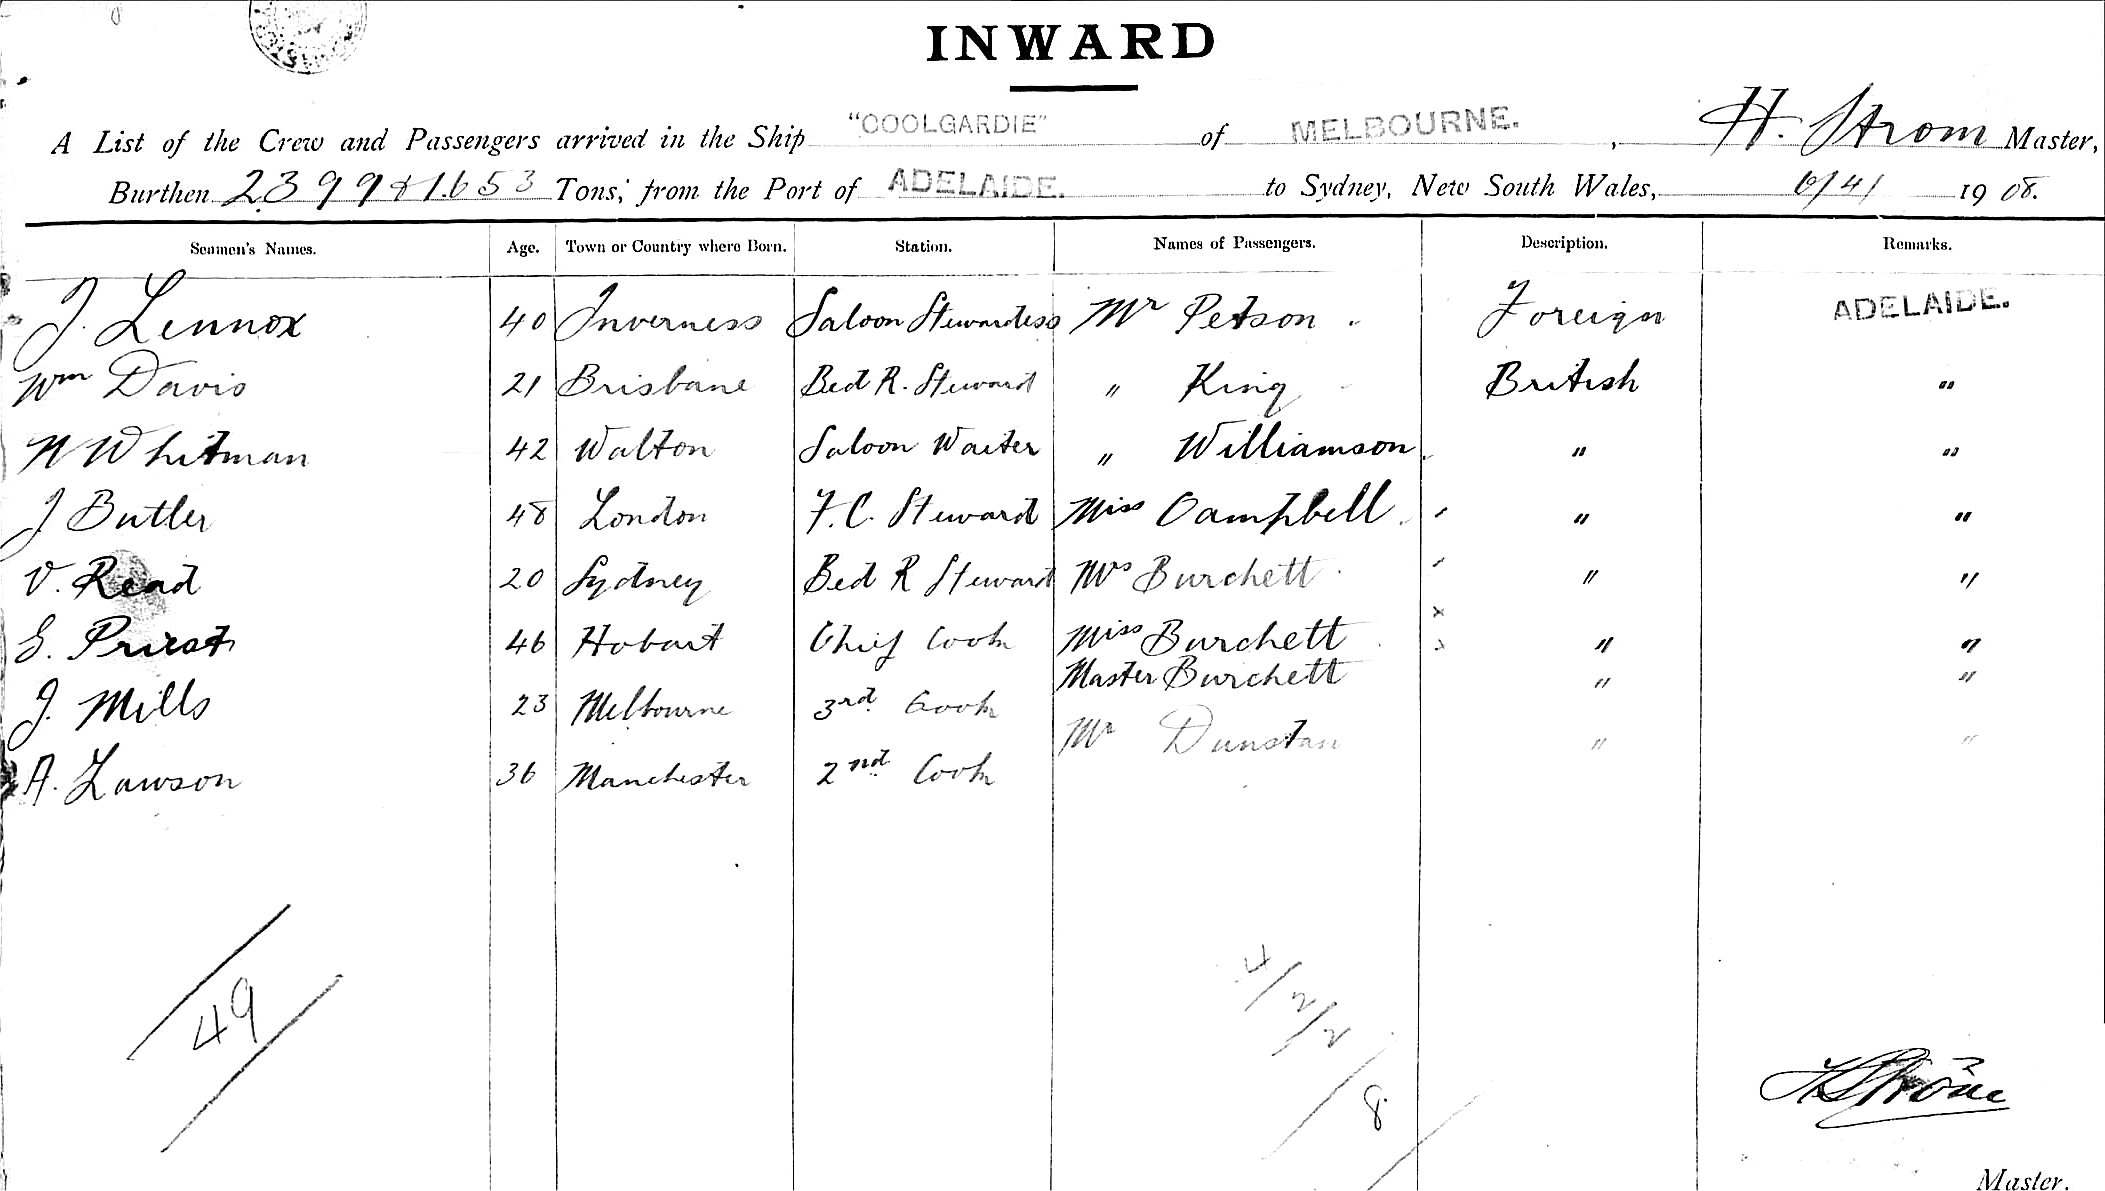 INWARD
A List of the Crew and Passengers arrived in the Ship "COOLGARDIE" of MELBOURNE. , H. Strom Master,
Burthen 2399 & 1653 Tons, from the Port of ADELAIDE. to Sydney, New South Wales, 6/4/ 1908.
Seamen's Names. Age. Town or Country where Born. Station. Names of Passengers. Description. Remarks.
J. Lennox 40 Inverness Saloon Stewardess Mr Petson Foreign ADELAIDE.
Wm Davis 21 Brisbane Bed R. Steward " King British "
W Whitman 42 Walton Saloon Waiter " Williamson " "
J Butler 48 London F.C. Steward Miss Campbell " "
V. Read 20 Sydney Bed R Steward Mrs Burchett " "
S. Priest 46 Hobart Chief Cook Miss Burchett " "
Master Burchett " "
J. Mills 23 Melbourne 3rd Cook
Mr Dunstan " "
A. Lawson 36 Manchester 2nd Cook
49
4/2/2
8
Master.